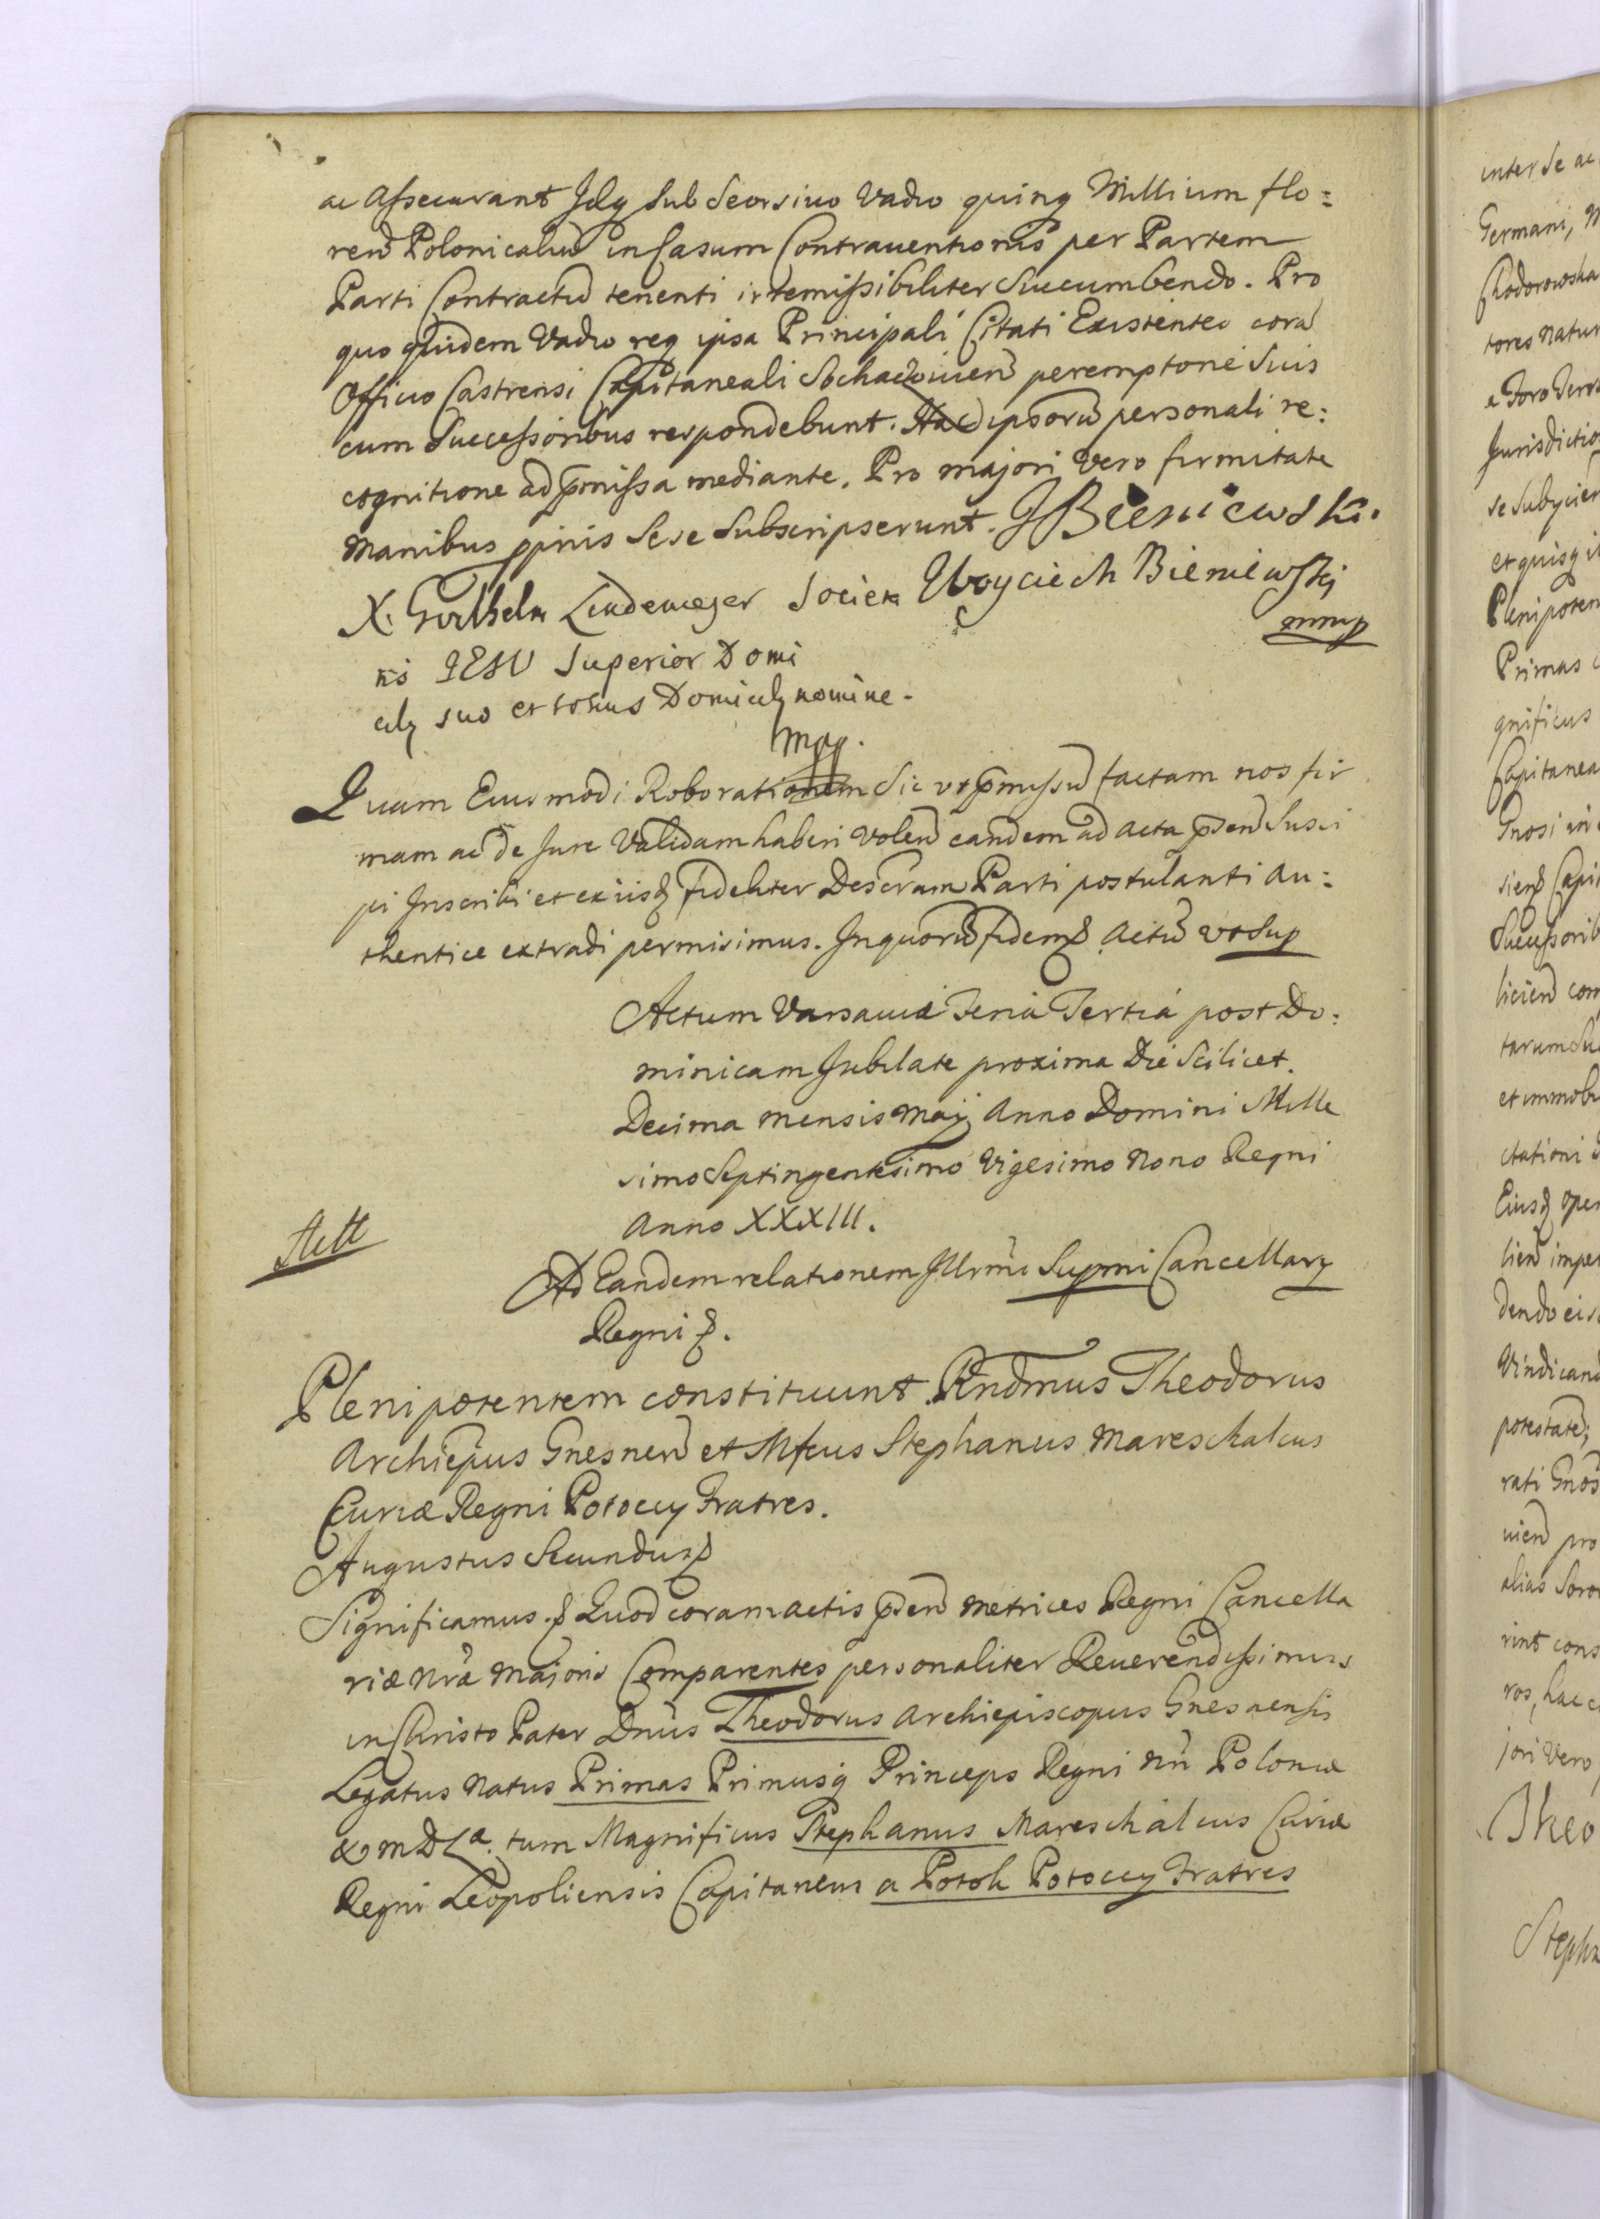 ac assecurant Idq sub Seorsivo Vadio quinq Millium flo:
ren Polonicaliu in Casum Contrauentionis per Partem
Parti Contractu tenenti irremissibiliter Succumbendo. Pro
quo quidem Vadio req ipsa Principali Citati Existentes cora
Officio Castrensi Capitaneali Sochaczouien peremptorie Suis
cum Successoribus respondebunt. Hac ipsoru personali re:
cognitione ad pmissa mediante. Pro majori Vero firmitate
manibus ppriis sese Subscripserunt. J Bieniewski.
X. Wilhelm Lindemeyer Societa Woyciech Bieniewskj
mmp
tis IESU Superior Domi
cilij suo et totius Domicilij nomine.
mpp.
Quam Eiusmodi Roborationem Sic ut pmissu factam nos fir
mam ac de Jure Validam haberi Volen eandem ad acta psen Susci
pi Inscribi et ex iisq fideliter Descriam Parti postulanti au:
thentice extradi permisimus. In quoru fidem Actu ut Sup
Actum Varsauiæ Feria Tertia post Do:
minicam Jubilate proxima Die Scilicet.
Decima mensis Maij Anno Domini Mille
simo Septingentesimo Vigesimo Nono Regni
Anno XXXIII.
Ad Eandem relationem Illrmi Supmi Cancellarij
Regni
Plenipotentem constituunt Rndmus Theodorus
Archiepus Gnesnen et Mfcus Stephanus Mareschalcus
Curiæ Regni Potoccy Fratres.
Augustus Secundus
Significamus. Quod coram actis psen Metrices Regni Cancella
riæ Nræ Majoris Comparentes personaliter Reuerendissimus
in Christo Pater Dnus Theodorus Archiepiscopus Gnesnensis
Legatus Natus Primas Primusq Princeps Regni Nri Poloniæ
& M D L a. tum Magnificus Stephanus Mareschalcus Curiæ
Regni Leopoliensis Capitaneus a Potok Potoccy Fratres
inter se ac
Germani,
Chodorowska
tores natur
a Foro
Jurisdictio
se Subycien
et quisq
Plenipoten
Primas
gnificus
Capitanea
Gnosi in
sien Capi
Successorib
licien com
tarum
et immobi
ctationi
Eiusq oper
lien impe
dendo eis
Vindicand
potestate;
rati Gnos
uien pro
alias Soro
rint cons
ros, hac
jori Vero
Theo
Stepha